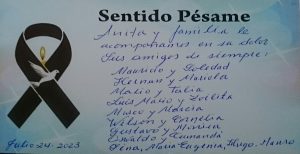 Sentido Pésame
Anita y familia le
acompañamos en su dolor
Sus amigos de siempre:
Mauricio y Soledad
Hernan y Mariela
Mario y Talia
Luis Mario y Lolita
Marco y Marcia
Wilson y Cornelia
Gustavo y Monica
Osvaldo y
Elena, Maria Eugenia, Hugo, Mauro
Julio 24-2023